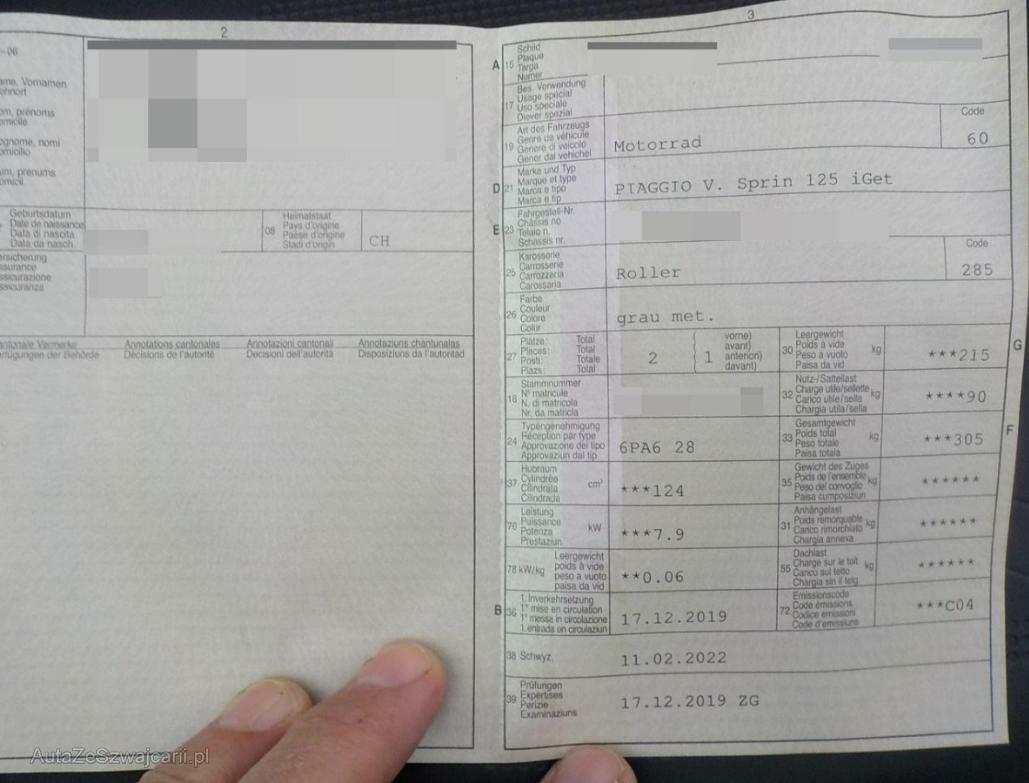 2
-06
me, Vornamen
hnort
om, prénoms
omicile
ognome, nomi
omicilio
um, prenums
omicil
Geburtsdatum
Date de naissance
Data di nascita
Data da nasch.
08
Heimatstaat
Pays d'origine
Paese d'origine
Stadi d'origin
CH
ersicherung
ssurance
ssicurazione
ssicuranza
antonale Vermerke
erfügungen der Behörde
Annotations cantonales
Décisions de l'autorité
Annotazioni cantonali
Decisioni dell'autorità
Annotaziuns chantunalas
Disposiziuns da l'autoritad
3
A 15
Schild
Plaque
Targa
Numer
17
Bes. Verwendung
Usage spécial
Uso speciale
Diever spezial
19
Art des Fahrzeugs
Genre de véhicule
Genere di veicolo
Gener dal vehichel
Motorrad
Code
60
D 21
Marke und Typ
Marque et type
Marca e tipo
Marca e tip
PIAGGIO V. Sprin 125 iGet
E 23
Fahrgestell-Nr.
Châssis no
Telaio n.
Schassis nr.
25
Karosserie
Carrosserie
Carrozzeria
Carossaria
Roller
Code
285
26
Farbe
Couleur
Colore
Colur
grau met.
27
Plätze: Total
Places: Total
Posti: Totale
Plazs: Total
2
1
vorne)
avant)
anteriori)
davant)
30
Leergewicht
Poids à vide
Peso a vuoto
Paisa da vid
kg
***215
G
18
Stammnummer
N° matricule
N. di matricola
Nr. da matricla
32
Nutz-/Sattellast
Charge utile/sellette
Carico utile/sella
Chargia utila/sella
kg
****90
24
Typengenehmigung
Réception par type
Approvazione del tipo
Approvaziun dal tip
6PA6 28
33
Gesamtgewicht
Poids total
Peso totale
Paisa totala
kg
***305
F
37
Hubraum
Cylindrée
Cilindrata
Cilindrada
cm³
***124
35
Gewicht des Zuges
Poids de l'ensemble
Peso del convoglio
Paisa cumposiziun
kg
******
76
Leistung
Puissance
Potenza
Prestaziun
kW
***7.9
31
Anhängelast
Poids remorquable
Carico rimorchiato
Chargia annexa
kg
******
78 kW/kg
Leergewicht
poids à vide
peso a vuoto
paisa da vid
**0.06
55
Dachlast
Charge sur le toit
Carico sul tetto
Chargia sin il tetg
kg
******
B 36
1. Inverkehrsetzung
1re mise en circulation
1a messa in circolazione
1. entrada en circulaziun
17.12.2019
72
Emissionscode
Code émissions
Codice emissioni
Code d'emissiuns
***C04
38 Schwyz,
11.02.2022
39
Prüfungen
Expertises
Perizie
Examinaziuns
17.12.2019 ZG
AutaZeSzwajcarii.pl